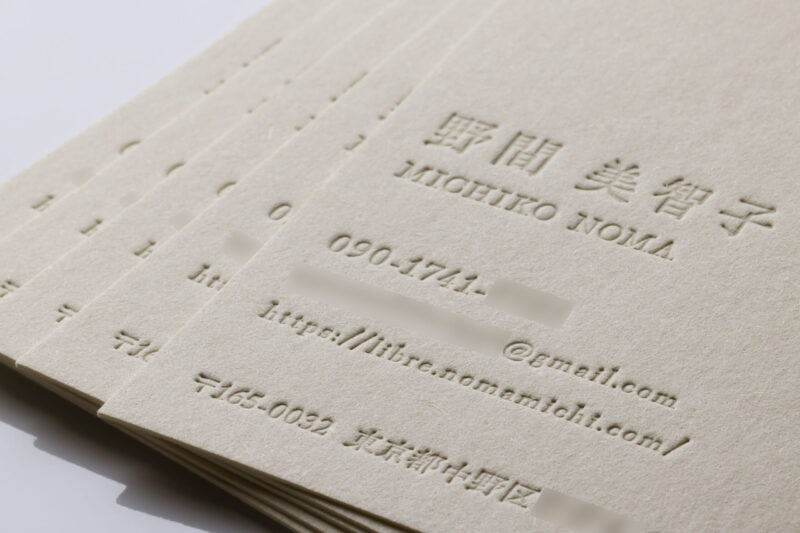 野間 美智子
MICHIKO NOMA
090-1741-
@gmail.com
https://libre.nomamichi.com/
〒165-0032 東京都中野区